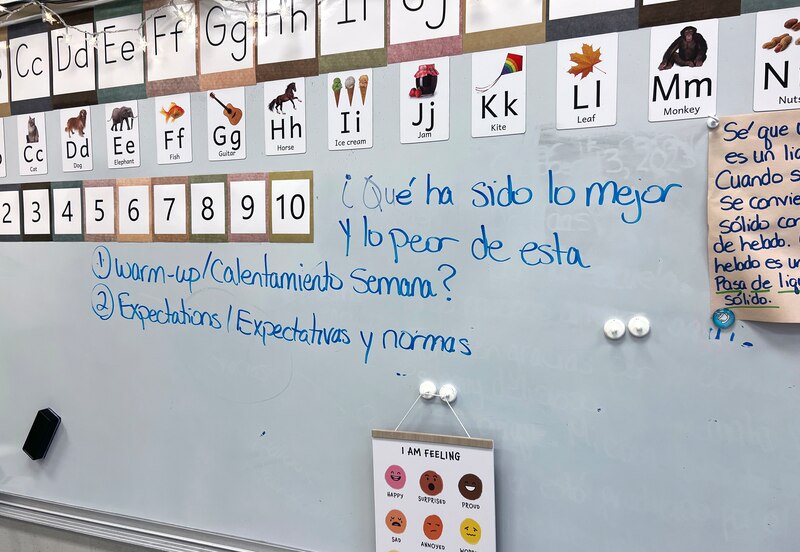 Cc Dd Ee Ff Gg Hh Ii Jj
Cc Dd Ee Ff Gg Hh Ii Jj Kk Ll Mm N
Cat Dog Elephant Fish Guitar Horse Ice cream Jam Kite Leaf Monkey Nuts
2 3 4 5 6 7 8 9 10
¿Qué ha sido lo mejor
y lo peor de esta
semana?
① warm-up/Calentamiento
② Expectations/Expectativas y normas
Sé que
es un
Cuando
Se
sólido
de helado.
helado es
Pasa de
sólido.
I AM FEELING
HAPPY SURPRISED PROUD
SAD ANNOYED